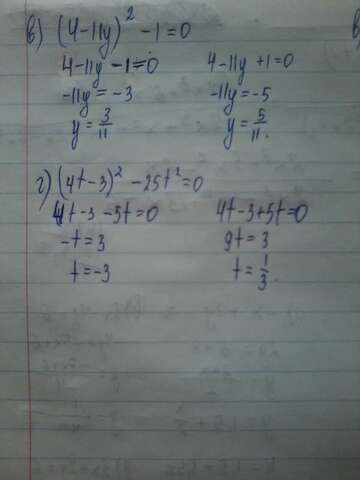 в) (4-11y)² -1=0
4-11y-1=0 4-11y+1=0
-11y=-3 -11y=-5
y=3/11 y=5/11.
г) (4t-3)² -25t²=0
4t-3-5t=0 4t-3+5t=0
-t=3 9t=3
t=-3 t=1/3.